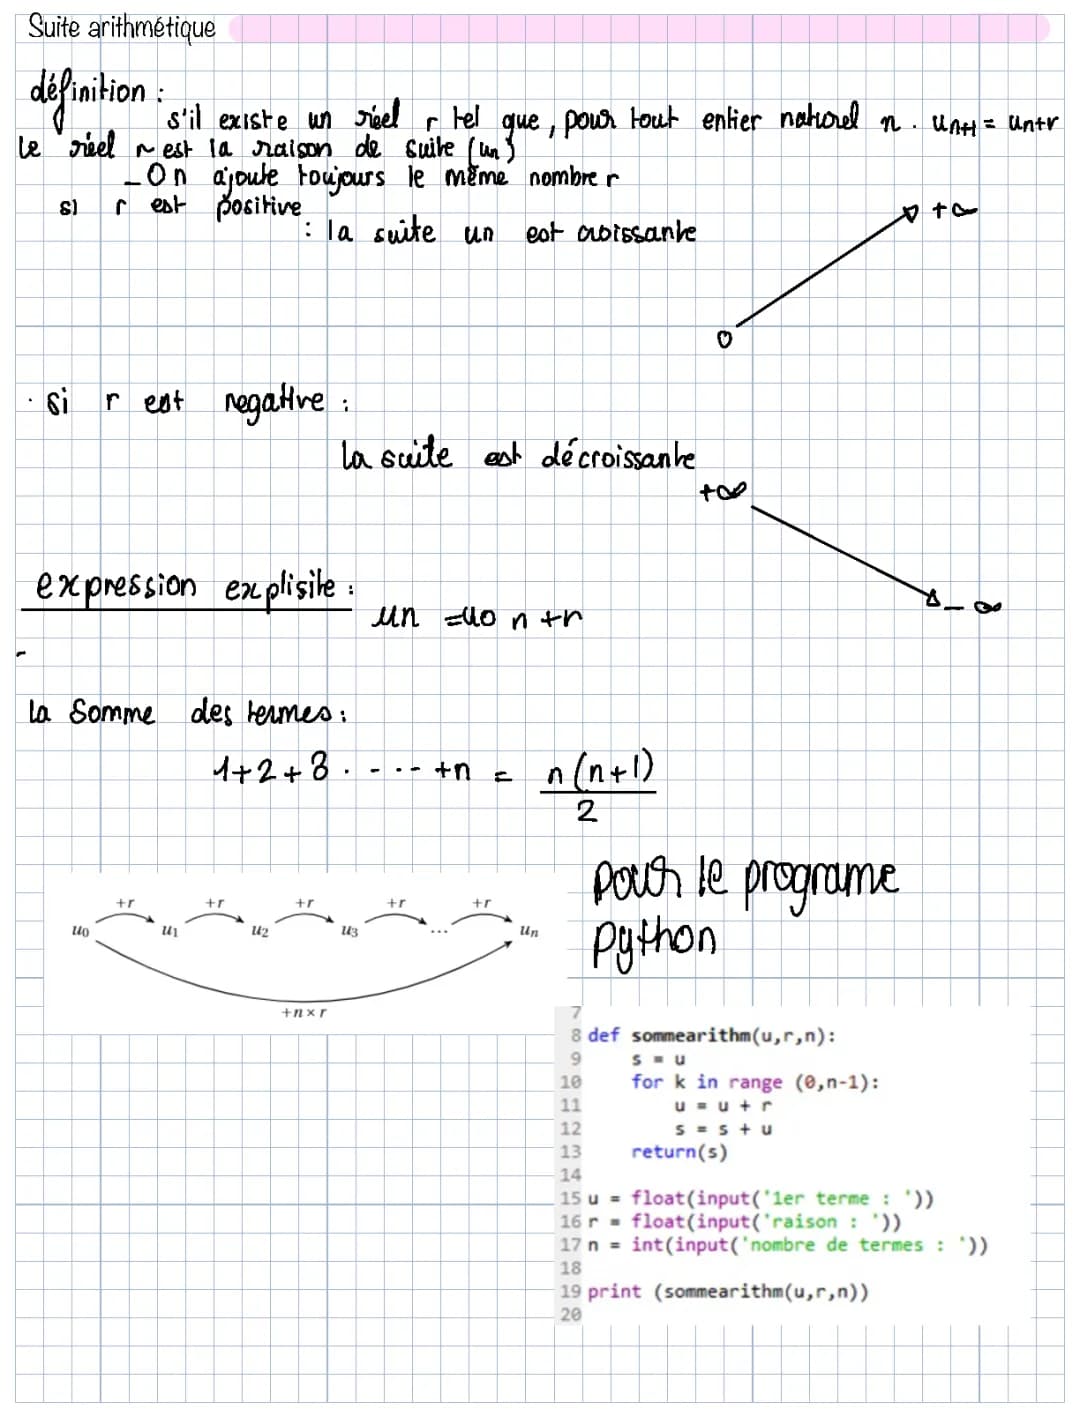 Suite arithmétique
définition :
s'il existe un réel r tel que, pour tout entier naturel n. un+1 = un+r
le réel r est la raison de suite (un)
_ On ajoute toujours le même nombre r
si r est positive
: la suite un est croissante
+∞
0
· si r est negative :
la suite est décroissante
+∞
-∞
expression explisite :
un = u0 n + r
-
la Somme des termes :
1+2+3 . - - - - +n = n(n+1)
2
pour le programe
python
+r +r +r +r +r
u0 u1 u2 u3 ... un
+n×r
7
8 def sommearithm(u,r,n):
9 s = u
10 for k in range (0,n-1):
11 u = u + r
12 s = s + u
13 return(s)
14
15 u = float(input('1er terme : '))
16 r = float(input('raison : '))
17 n = int(input('nombre de termes : '))
18
19 print (sommearithm(u,r,n))
20